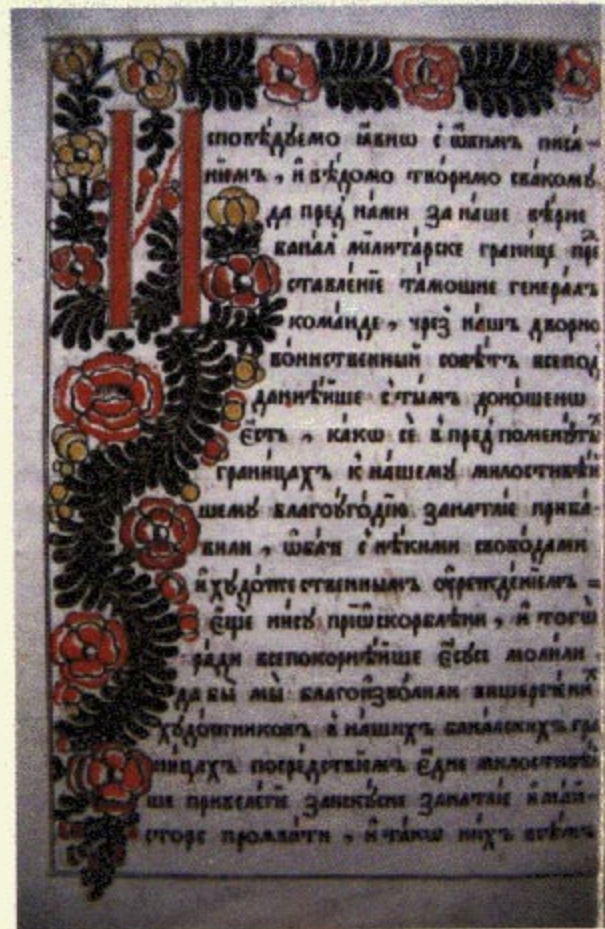 Исповѣдуемо ꙗвнѡ с ѡвимъ писа-
нїемъ, и вѣдомо творимо свакому
да пред нами за наше вѣрне
банал милитарске границе пре
ставленїе тамошне генералъ
команде, чрез нашъ дворно
воинственный совѣтъ всепод
данѣйше с тымъ доношени
єстъ, какѡ се в пред поменꙋты
границахъ к нашему милостивѣй
шему благоꙋгодїю занатлїе приба-
вили, ѡбач с нѣкими свободами
и художественнымъ ꙋчрежденїемъ =
єще нису прїѡскорблѣни, и тогѡ
ради всепокорнѣйше єсусе молили
да бы мы благоизволили вишеречений
художниковъ в нашихъ баналскихъ гра
ницахъ посредствїемъ єдне милостивѣ
ше привелегїе занатлїе и май-
сторе промꙗнѣти, и такѡ нихъ всѣмъ